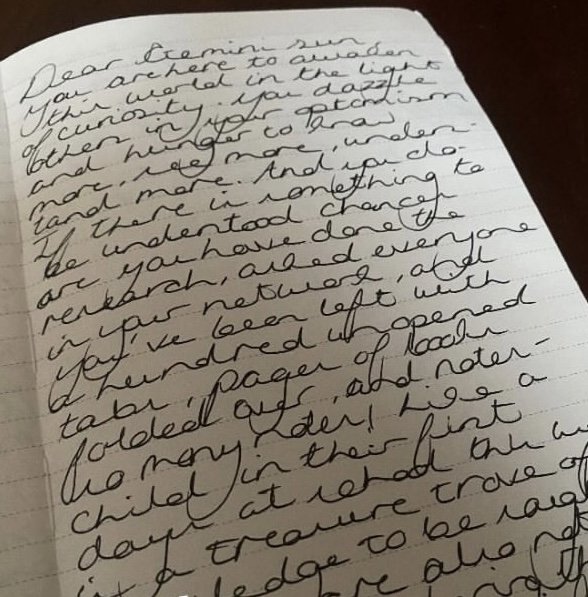 Dear Gemini sun
You are here to awaken
this world in the light
of curiosity. You dazzle
others in your optimism
and hunger to know
more, see more, under-
stand more. And you do.
If there is something to
be understood chances
are you have done the
research, asked everyone
in your network, and
you've been left with
a hundred unopened
tabs, pages of books
folded over, and notes-
so many notes! Like a
child in their first
days at school this w
is a treasure trove of
ledge to be
are also not